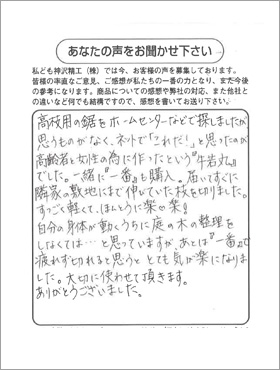 あなたの声をお聞かせ下さい
私ども神沢精工(株)では今、お客様の声を募集しております。
皆様の率直なご意見、ご感想が私たちの一番の力となり、また今後
の参考になります。商品についての感想や弊社の対応、また他社と
の違いなど何でも結構ですので、ご感想を書いてお送り下さい。
高枝用の鋸をホームセンターなどで探しましたが
思うものがなく、ネットで「これだ!」と思ったのが
高齢者と女性の為に作ったという『牛若丸』
でした。一緒に『一番』も購入。届いてすぐに
隣家の敷地にまで伸びていた枝を切りました。
すごーく軽くて、ほんとうに楽々楽。
自分の身体が動くうちに庭の木の整理を
しなくては…と思っていますが、あとは『一番』で
疲れず切れると思うと とても気が楽になりま
した。大切に使わせて頂きます。
ありがとうございました。